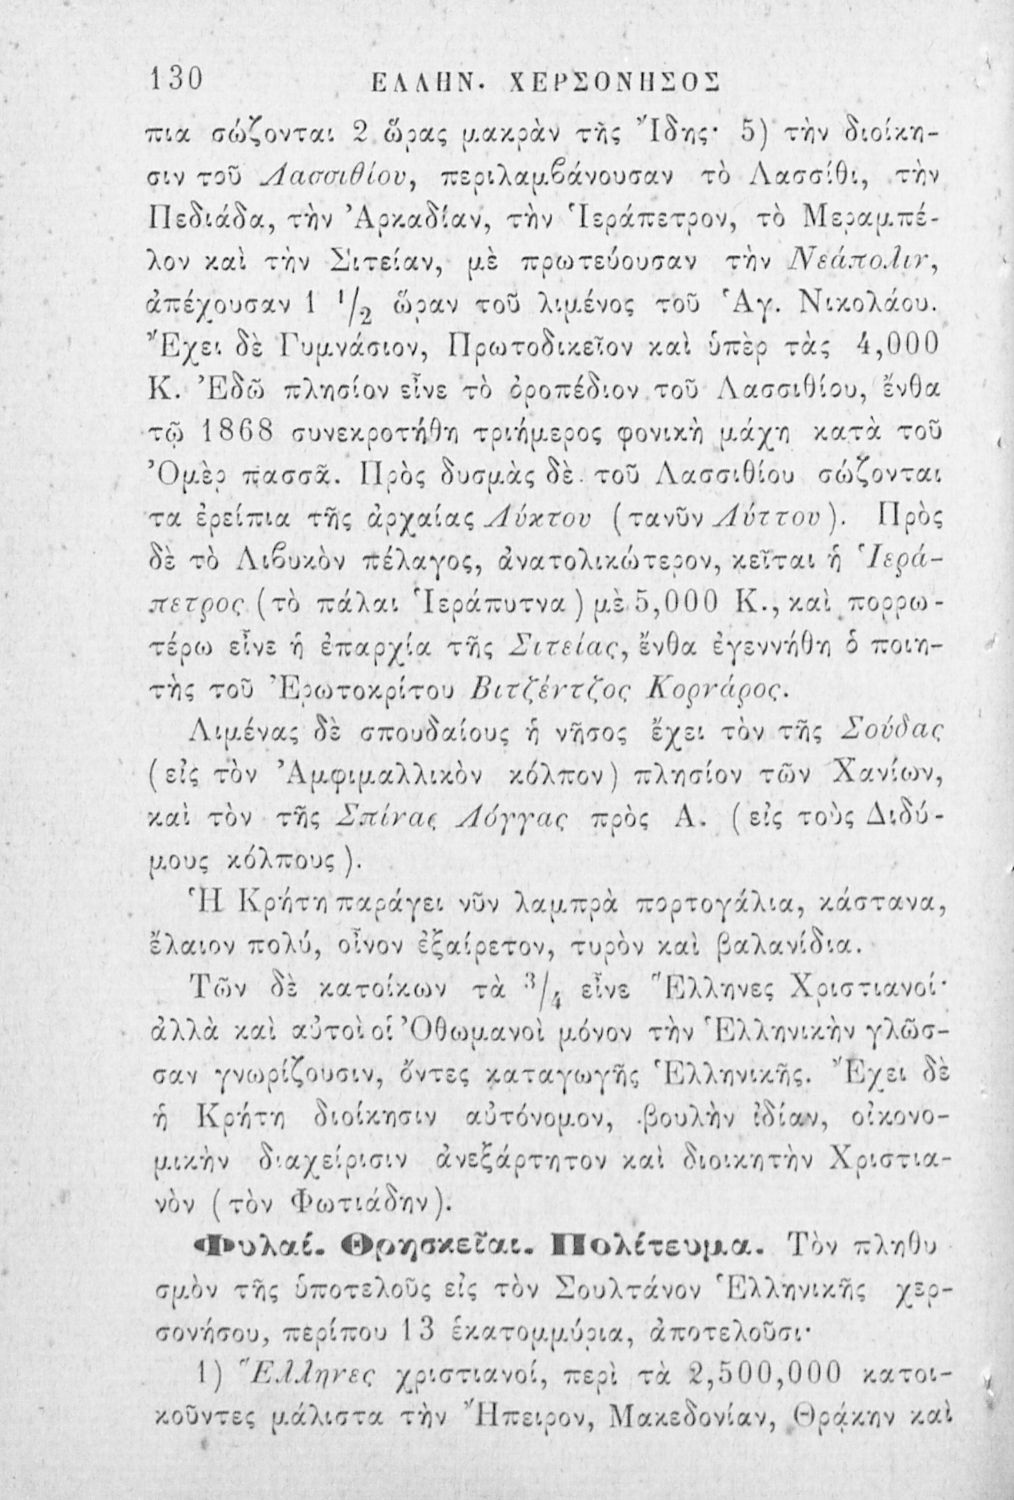 130 ΕΛΛΗΝ. ΧΕΡΣΟΝΗΣΟΣ
πια σώζονται 2 ὥρας μακρὰν τῆς Ἴδης· 5) τὴν διοίκη-
σιν τοῦ Λασσιθίου, περιλαμβάνουσαν τὸ Λασσίθι, τὴν
Πεδιάδα, τὴν Ἀρκαδίαν, τὴν Ἱεράπετρον, τὸ Μεραμπέ-
λον καὶ τὴν Σιτείαν, μὲ πρωτεύουσαν τὴν Νεάπολιν,
ἀπέχουσαν 1 1/2 ὥραν τοῦ λιμένος τοῦ Ἁγ. Νικολάου.
Ἔχει δὲ Γυμνάσιον, Πρωτοδικεῖον καὶ ὑπὲρ τὰς 4,000
Κ. Ἐδῶ πλησίον εἶνε τὸ ὀροπέδιον τοῦ Λασσιθίου, ἔνθα
τῷ 1868 συνεκροτήθη τριήμερος φονικὴ μάχη κατὰ τοῦ
Ὀμὲρ πασσᾶ. Πρὸς δυσμὰς δὲ τοῦ Λασσιθίου σώζονται
τα ἐρείπια τῆς ἀρχαίας Λύκτου (τανῦν Λύττου). Πρὸς
δὲ τὸ Λιβυκὸν πέλαγος, ἀνατολικώτερον, κεῖται ἡ Ἱερά-
πετρος (τὸ πάλαι Ἱεράπυτνα) μὲ 5,000 Κ., καὶ πορρω-
τέρω εἶνε ἡ ἐπαρχία τῆς Σιτείας, ἔνθα ἐγεννήθη ὁ ποιη-
τὴς τοῦ Ἐρωτοκρίτου Βιτζέντζος Κορνάρος.
Λιμένας δὲ σπουδαίους ἡ νῆσος ἔχει τὸν τῆς Σούδας
(εἰς τὸν Ἀμφιμαλλικὸν κόλπον) πλησίον τῶν Χανίων,
καὶ τὸν τῆς Σπίνας Λόγγας πρὸς Α. (εἰς τοὺς Διδύ-
μους κόλπους).
Ἡ Κρήτη παράγει νῦν λαμπρὰ πορτογάλια, κάστανα,
ἔλαιον πολύ, οἶνον ἐξαίρετον, τυρὸν καὶ βαλανίδια.
Τῶν δὲ κατοίκων τὰ 3/4 εἶνε Ἕλληνες Χριστιανοί·
ἀλλὰ καὶ αὐτοὶ οἱ Ὀθωμανοὶ μόνον τὴν Ἑλληνικὴν γλῶσ-
σαν γνωρίζουσιν, ὄντες καταγωγῆς Ἑλληνικῆς. Ἔχει δὲ
ἡ Κρήτη διοίκησιν αὐτόνομον, βουλὴν ἰδίαν, οἰκονο-
μικὴν διαχείρισιν ἀνεξάρτητον καὶ διοικητὴν Χριστια-
νὸν (τὸν Φωτιάδην).
Φυλαί. Θρησκεῖαι. Πολίτευμα. Τὸν πληθυ
σμὸν τῆς ὑποτελοῦς εἰς τὸν Σουλτάνον Ἑλληνικῆς χερ-
σονήσου, περίπου 13 ἑκατομμύρια, ἀποτελοῦσι·
1) Ἕλληνες χριστιανοί, περὶ τὰ 2,500,000 κατοι-
κοῦντες μάλιστα τὴν Ἤπειρον, Μακεδονίαν, Θρᾴκην καὶ